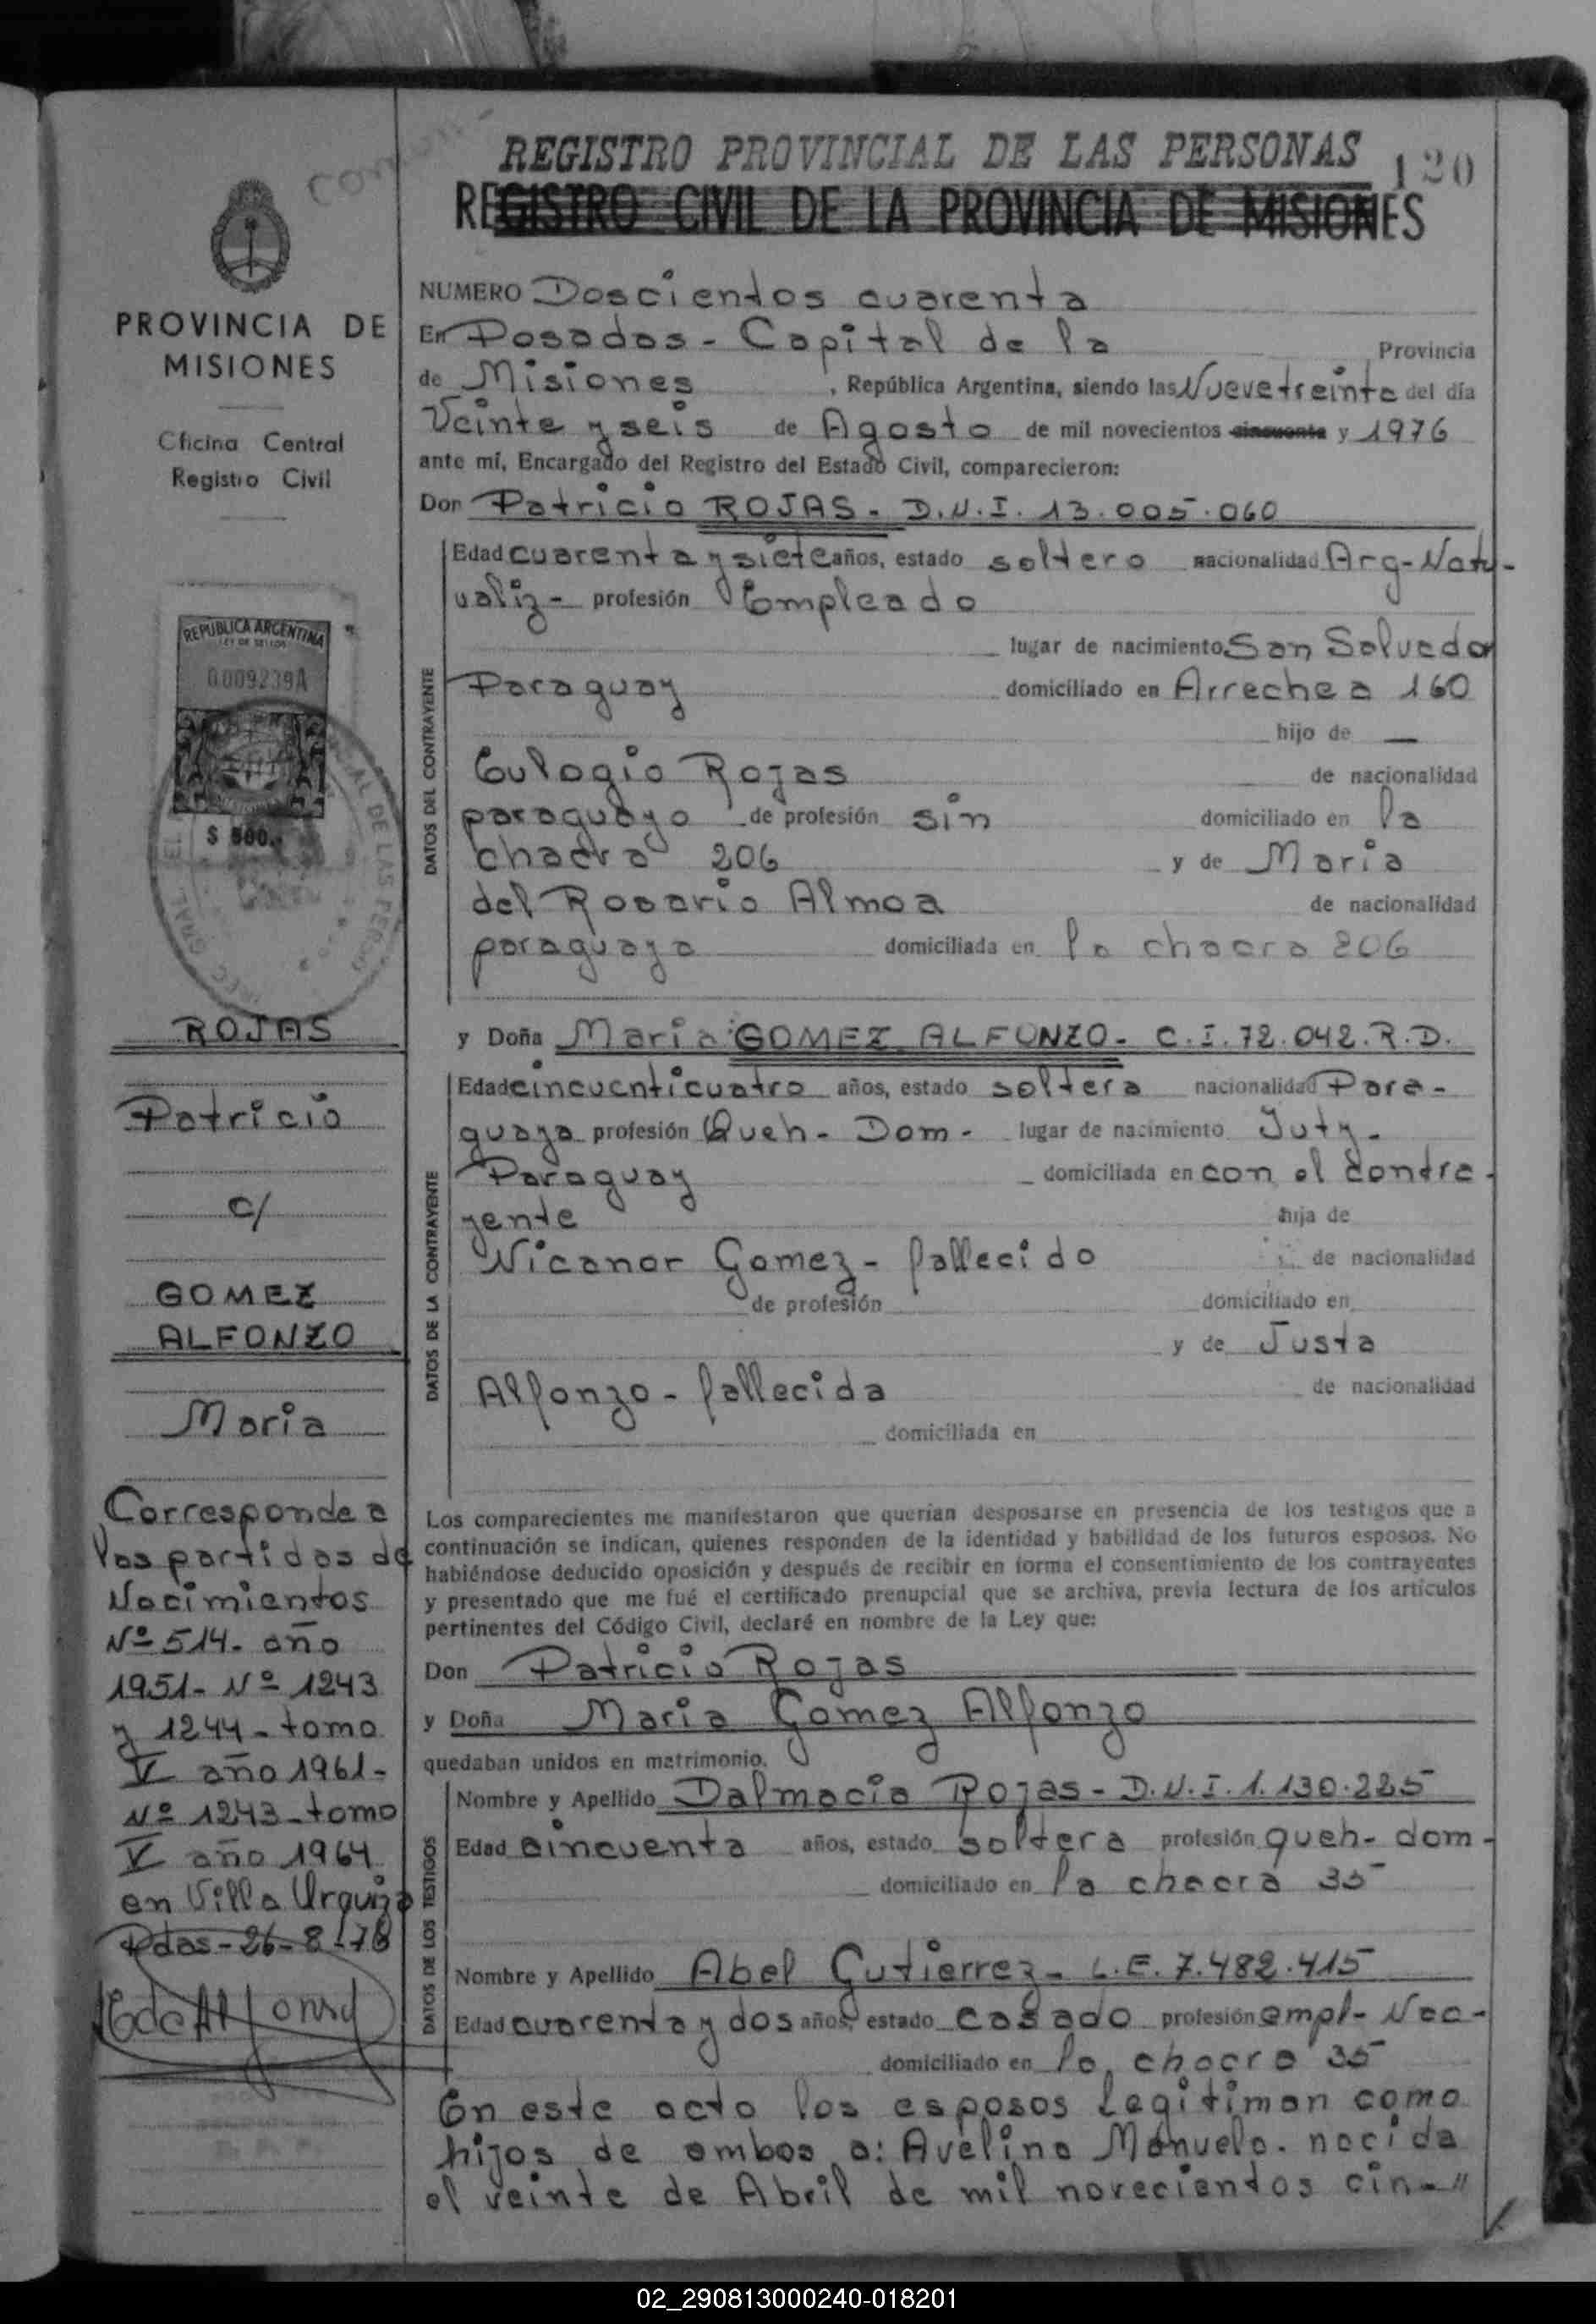 REGISTRO PROVINCIAL DE LAS PERSONAS
120
REGISTRO CIVIL DE LA PROVINCIA DE MISIONES
PROVINCIA DE
MISIONES
Oficina Central
Registro Civil
REPUBLICA ARGENTINA
LEY DE SELLOS
0009239A
$ 500.-
ROJAS
Patricio
c/
GOMEZ
ALFONZO
Maria
Corresponde a
las partidas de
Nacimientos
Nº 514- año
1951- Nº 1243
y 1244- tomo
V año 1961-
Nº 1243- tomo
V año 1964
en Villa Urquiza
Pdas-26-8-76
NUMERO Doscientos cuarenta
En Posadas - Capital de la Provincia
de Misiones, República Argentina, siendo las Nueve treinta del día
Veinte y seis de Agosto de mil novecientos cincuenta y 1976
ante mí, Encargado del Registro del Estado Civil, comparecieron:
Don Patricio ROJAS - D.N.I. 13.005.060
DATOS DEL CONTRAYENTE
Edad cuarenta y siete años, estado soltero nacionalidad Arg-Natu-
raliz- profesión Empleado
lugar de nacimiento San Salvador
Paraguay domiciliado en Arrechea 160
hijo de —
Eulogio Rojas de nacionalidad
paraguayo de profesión sin domiciliado en la
chacra 206 y de Maria
del Rosario Almoa de nacionalidad
paraguaya domiciliada en la chacra 206
y Doña Maria GOMEZ ALFONZO - C.I. 72.042.R.D.
DATOS DE LA CONTRAYENTE
Edad cincuenticuatro años, estado soltera nacionalidad Para-
guaya profesión Queh- Dom- lugar de nacimiento Yuty-
Paraguay domiciliada en con el contra-
yente hija de
Nicanor Gomez - fallecido de nacionalidad
de profesión domiciliado en
y de Justa
Alfonzo - fallecida de nacionalidad
domiciliada en
Los comparecientes me manifestaron que querían desposarse en presencia de los testigos que a
continuación se indican, quienes responden de la identidad y habilidad de los futuros esposos. No
habiéndose deducido oposición y después de recibir en forma el consentimiento de los contrayentes
y presentado que me fué el certificado prenupcial que se archiva, previa lectura de los artículos
pertinentes del Código Civil, declaré en nombre de la Ley que:
Don Patricio Rojas
y Doña Maria Gomez Alfonzo
quedaban unidos en matrimonio.
DATOS DE LOS TESTIGOS
Nombre y Apellido Dalmacia Rojas - D.N.I. 1.130.225
Edad cincuenta años, estado soltera profesión queh- dom-
domiciliado en la chacra 35
Nombre y Apellido Abel Gutierrez - L.E. 7.482.415
Edad cuarenta y dos años, estado casado profesión empl- Nac-
domiciliado en la chacra 35
En este acto los esposos legitiman como
hijos de ambos a: Avelina Manuela. nacida
el veinte de Abril de mil novecientos cin-"
02_290813000240-018201